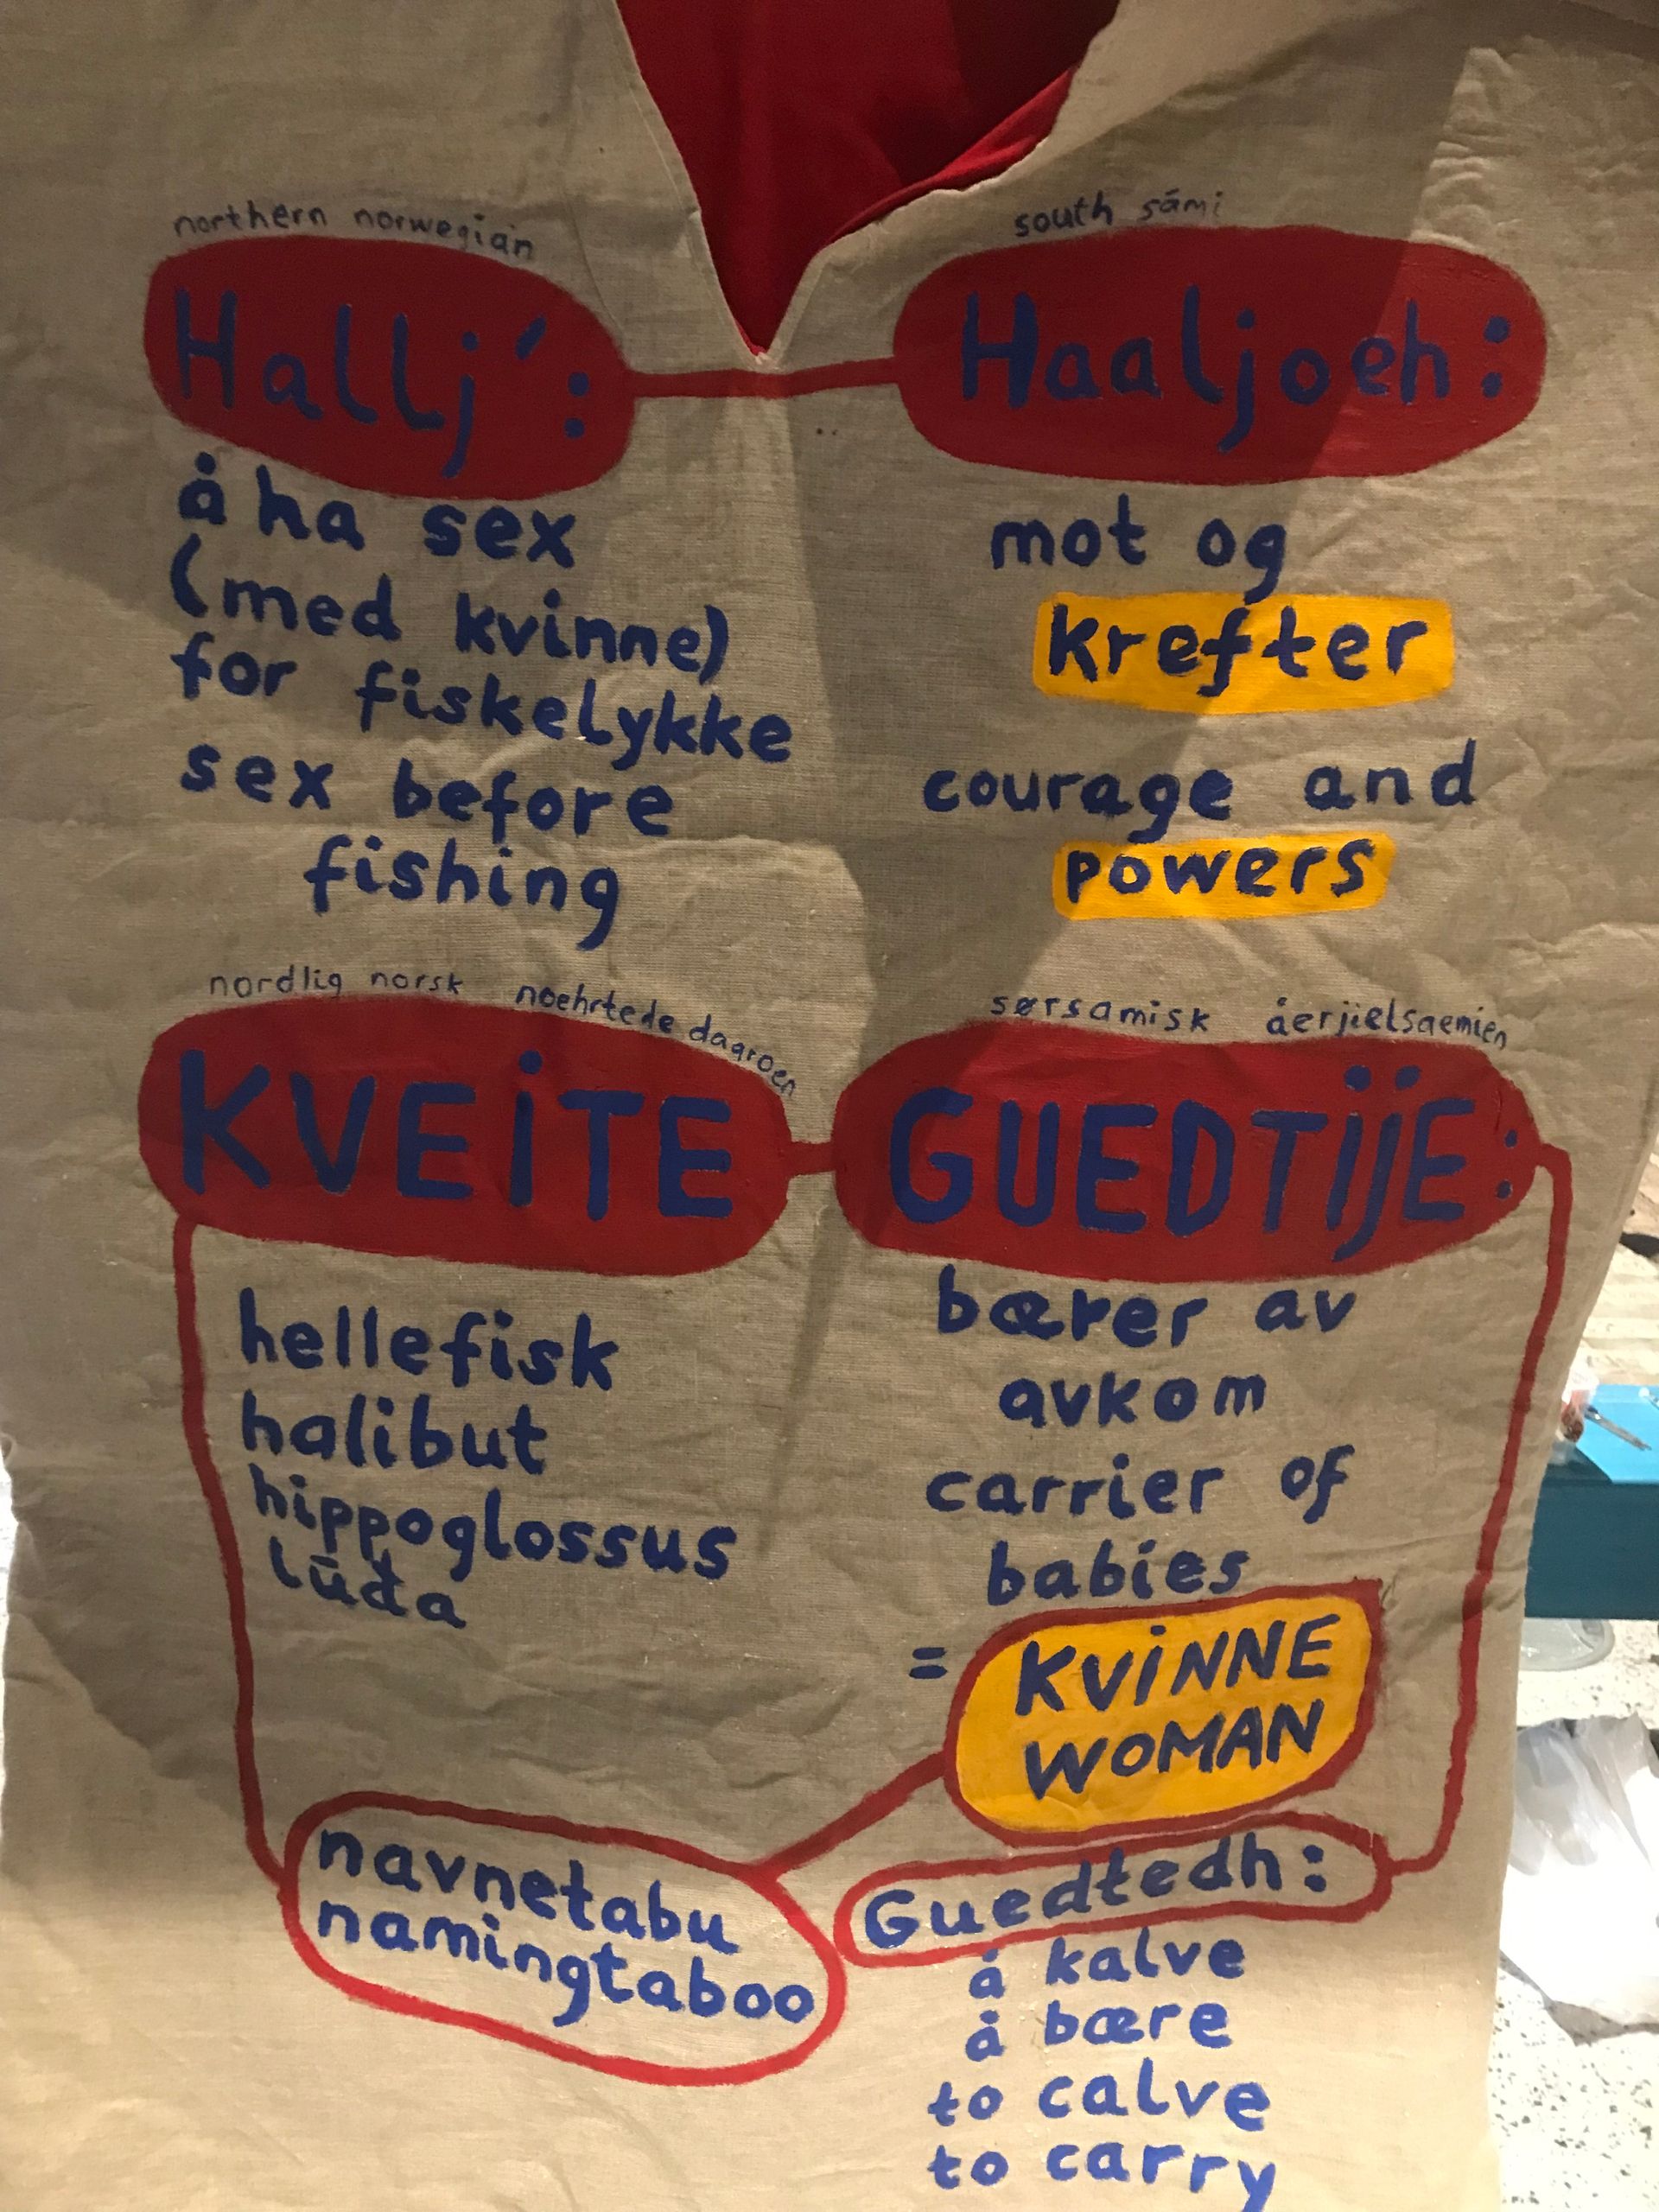 northern norwegian
Hallj´:
å ha sex
(med kvinne)
for fiskelykke
sex before
fishing
south sámi
Haaljoeh:
mot og
krefter
courage and
powers
nordlig norsk noehrtede daaroen
KVEiTE
hellefisk
halibut
hippoglossus
lūđa
navnetabu
namingtaboo
sørsamisk åerjielsaemien
GUEDTÏJE:
bærer av
avkom
carrier of
babies
= KViNNE
WOMAN
Guedtedh:
å kalve
å bære
to calve
to carry